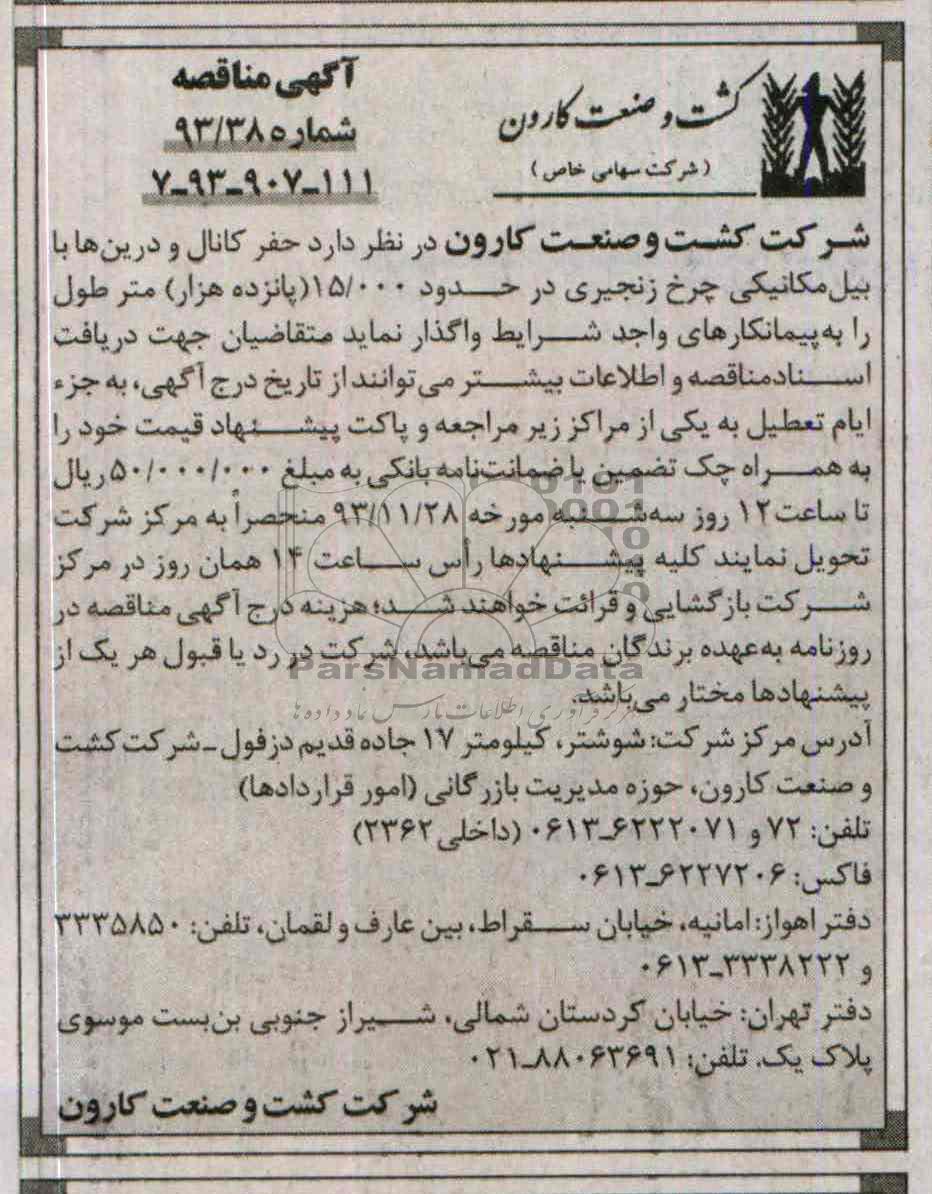 کشت و صنعت کارون
(شرکت سهامی خاص)
آگهی مناقصه
شماره ۹۳/۳۸
۷-۹۳-۹۰۷-۱۱۱
شرکت کشت و صنعت کارون در نظر دارد حفر کانال و درین‌ها با
بیل مکانیکی چرخ زنجیری در حدود ۱۵/۰۰۰(پانزده هزار) متر طول
را به پیمانکارهای واجد شرایط واگذار نماید متقاضیان جهت دریافت
اسناد مناقصه و اطلاعات بیشتر می‌توانند از تاریخ درج آگهی، به جزء
ایام تعطیل به یکی از مراکز زیر مراجعه و پاکت پیشنهاد قیمت خود را
به همراه چک تضمین یا ضمانت‌نامه بانکی به مبلغ ۵۰/۰۰۰/۰۰۰ ریال
تا ساعت ۱۲ روز سه‌شنبه مورخه ۹۳/۱۱/۲۸ منحصراً به مرکز شرکت
تحویل نمایند کلیه پیشنهادها رأس ساعت ۱۴ همان روز در مرکز
شرکت بازگشایی و قرائت خواهند شد؛ هزینه درج آگهی مناقصه در
روزنامه به عهده برندگان مناقصه می‌باشد، شرکت در رد یا قبول هر یک از
ParsNamadData
پیشنهادها مختار می‌باشد.
مرکز فرآوری اطلاعات پارس نماد داده ها
آدرس مرکز شرکت: شوشتر، کیلومتر ۱۷ جاده قدیم دزفول ـ شرکت کشت
و صنعت کارون، حوزه مدیریت بازرگانی (امور قراردادها)
تلفن: ۷۲ و ۶۲۲۲۰۷۱-۰۶۱۳ (داخلی ۲۳۶۲)
فاکس: ۶۲۲۷۲۰۶-۰۶۱۳
دفتر اهواز: امانیه، خیابان سقراط، بین عارف و لقمان، تلفن: ۳۳۳۵۸۵۰
و ۳۳۳۸۲۲۲-۰۶۱۳
دفتر تهران: خیابان کردستان شمالی، شیراز جنوبی بن‌بست موسوی
پلاک یک. تلفن: ۸۸۰۶۳۶۹۱-۰۲۱
شرکت کشت و صنعت کارون